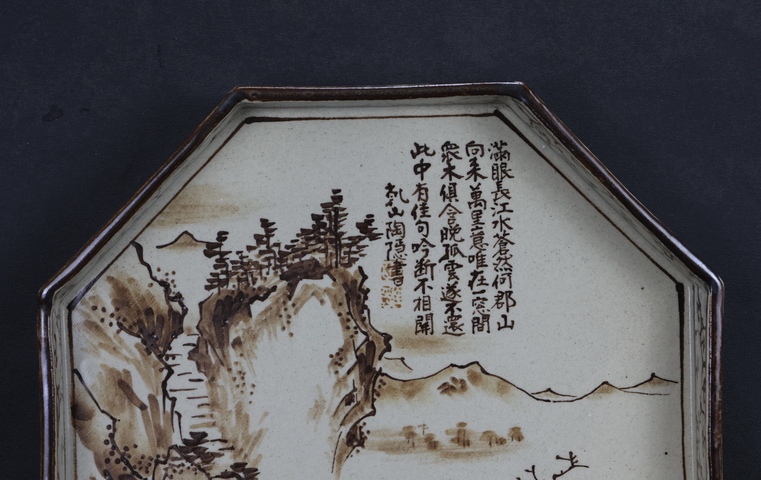 滿眼長江水蒼然何郡山
向來萬里意唯在窓間
衆木俱含晩孤雲遂不還
此中有佳句吟断不相関
乾山陶隠書